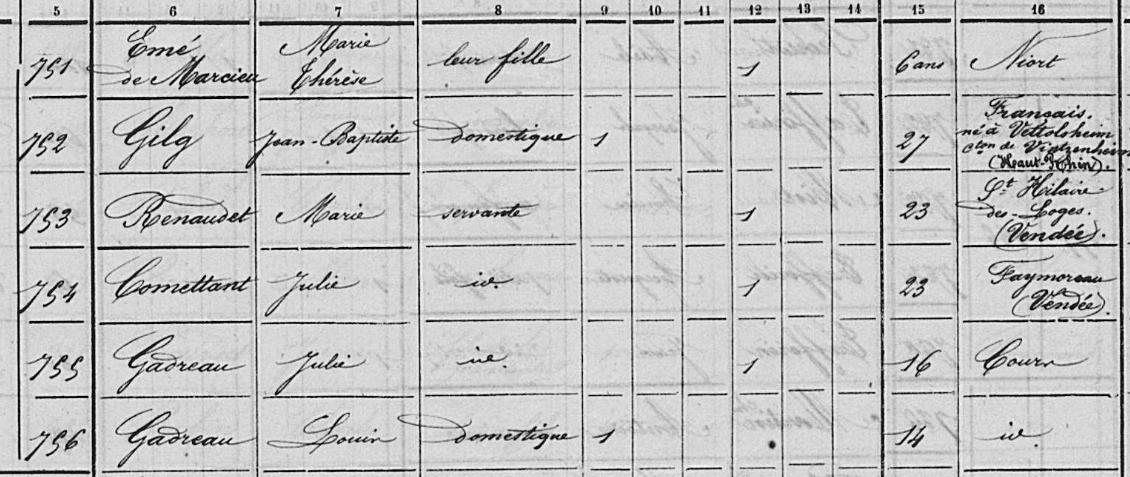 5 6 7 8 9 10 11 12 13 14 15 16
751 Emé de Marcieu Marie Thérèse leur fille 1 6 ans Niort
752 Gilg Jean-Baptiste domestique 1 27 Français. né à Vettolsheim
Cton de Vintzenheim
(Haut-Rhin).
753 Renaudet Marie servante 1 23 St Hilaire
des-Loges.
(Vendée).
754 Comettant Julie id. 1 23 Faymoreau
(Vendée).
755 Gadreau Julie id. 1 16 Cours
756 Gadreau Louis domestique 1 14 id.